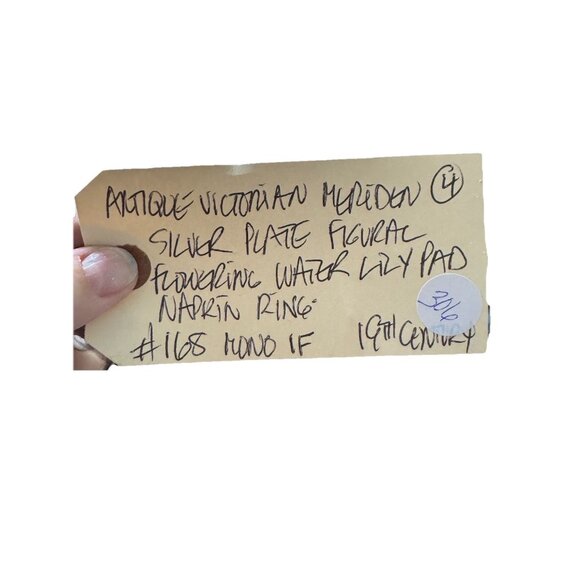 ANTIQUE VICTORIAN MERIDEN 4
SILVER PLATE FIGURAL
FLOWERING WATER LILY PAD
NAPKIN RING
306
#168 MONO IF 19TH CENTURY